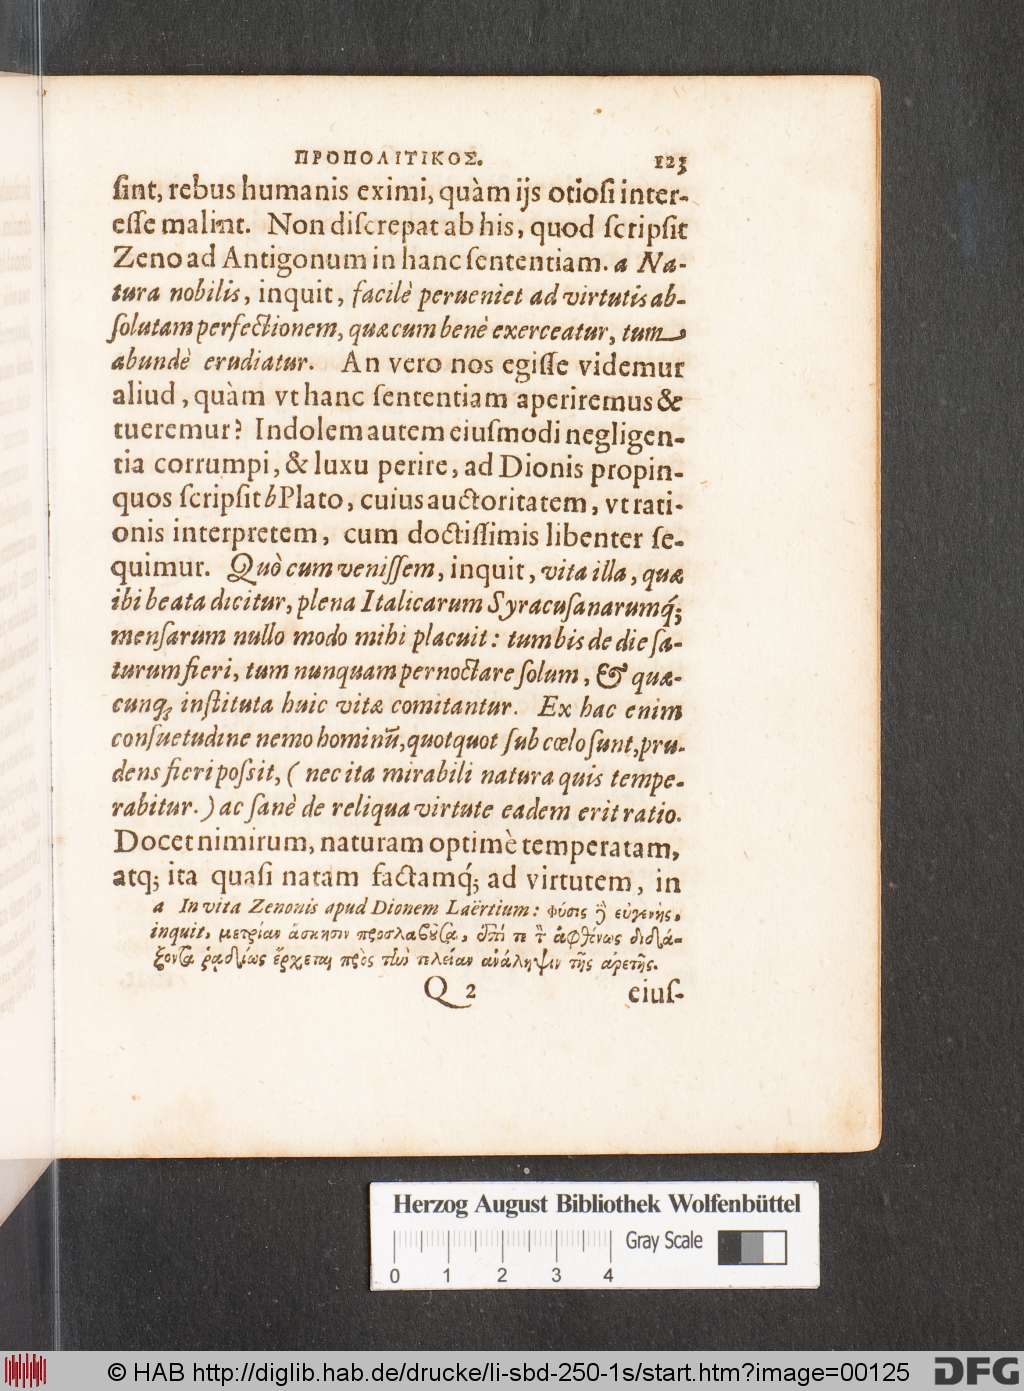 ΠΡΟΠΟΛΙΤΙΚΟΣ. 123
ſint, rebus humanis eximi, quàm ijs otioſi inter-
eſſe malint. Non diſcrepat ab his, quod ſcripſit
Zeno ad Antigonum in hanc ſententiam. a Na-
tura nobilis, inquit, facilè perueniet ad virtutis ab-
ſolutam perfectionem, quæ cum benè exerceatur, tum
abundè erudiatur. An vero nos egiſſe videmur
aliud, quàm vt hanc ſententiam aperiremus &
tueremur? Indolem autem eiuſmodi negligen-
tia corrumpi, & luxu perire, ad Dionis propin-
quos ſcripſit b Plato, cuius auctoritatem, vt rati-
onis interpretem, cum doctiſſimis libenter ſe-
quimur. Quò cum veniſſem, inquit, vita illa, quæ
ibi beata dicitur, plena Italicarum Syracuſanarumq́;
menſarum nullo modo mihi placuit: tum bis de die ſa-
turum fieri, tum nunquam pernoctare ſolum, & quæ-
cunq; inſtituta huic vitæ comitantur. Ex hac enim
conſuetudine nemo hominũ, quotquot ſub cœlo ſunt, pru-
dens fieri poſsit, (nec ita mirabili natura quis tempe-
rabitur.) ac ſanè de reliqua virtute eadem erit ratio.
Docet nimirum, naturam optimè temperatam,
atq; ita quaſi natam factamq́; ad virtutem, in
a In vita Zenonis apud Dionem Laërtium: φύσις ἢ εὐγενὴς,
inquit, μετρίαν ἄσκησιν προσλαβοῦσα, ἔτι τε τὸν ἀφθόνως διδά-
ξοντα ῥᾳδίως ἔρχεται πρὸς τὴν τελείαν ἀνάληψιν τῆς ἀρετῆς.
Q 2 eiuſ-
Herzog August Bibliothek Wolfenbüttel
Gray Scale
0 1 2 3 4
© HAB http://diglib.hab.de/drucke/li-sbd-250-1s/start.htm?image=00125 DFG